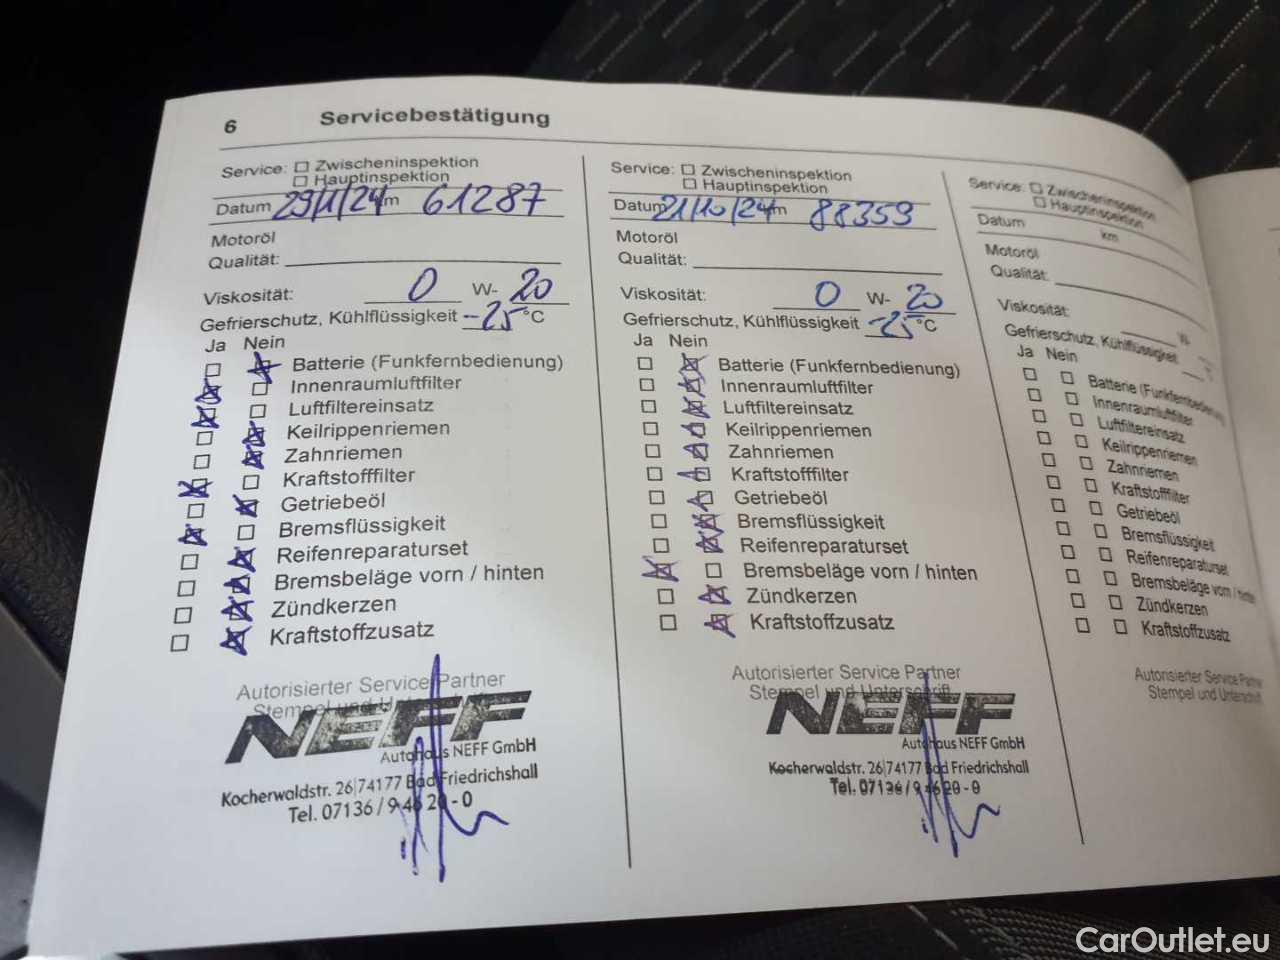 6 Servicebestätigung
Service: Zwischeninspektion
Hauptinspektion
Datum 29/1/24 km 61287
Motoröl
Qualität:
Viskosität: 0 W- 20
Gefrierschutz, Kühlflüssigkeit -25 °C
Ja Nein
Batterie (Funkfernbedienung)
Innenraumluftfilter
Luftfiltereinsatz
Keilrippenriemen
Zahnriemen
Kraftstofffilter
Getriebeöl
Bremsflüssigkeit
Reifenreparaturset
Bremsbeläge vorn / hinten
Zündkerzen
Kraftstoffzusatz
Autorisierter Service Partner
Stempel und
NEFF
Autohaus NEFF GmbH
Kocherwaldstr. 26|74177 Bad Friedrichshall
Tel. 07136 / 9 46 20 - 0
Service: Zwischeninspektion
Hauptinspektion
Datum 21/10/24 km 88359
Motoröl
Qualität:
Viskosität: 0 W- 20
Gefrierschutz, Kühlflüssigkeit -25 °C
Ja Nein
Batterie (Funkfernbedienung)
Innenraumluftfilter
Luftfiltereinsatz
Keilrippenriemen
Zahnriemen
Kraftstofffilter
Getriebeöl
Bremsflüssigkeit
Reifenreparaturset
Bremsbeläge vorn / hinten
Zündkerzen
Kraftstoffzusatz
Autorisierter Service Partner
Stempel und Unterschrift
NEFF
Autohaus NEFF GmbH
Kocherwaldstr. 26|74177 Bad Friedrichshall
Tel. 07136 / 9 46 20 - 0
Service: Zwischeninspektion
Hauptinspektion
Datum km
Motoröl
Qualität:
Viskosität: W-
Gefrierschutz, Kühlflüssigkeit °C
Ja Nein
Batterie (Funkfernbedienung)
Innenraumluftfilter
Luftfiltereinsatz
Keilrippenriemen
Zahnriemen
Kraftstofffilter
Getriebeöl
Bremsflüssigkeit
Reifenreparaturset
Bremsbeläge vorn / hinten
Zündkerzen
Kraftstoffzusatz
Autorisierter Service Partner
Stempel und Unterschrift
CarOutlet.eu